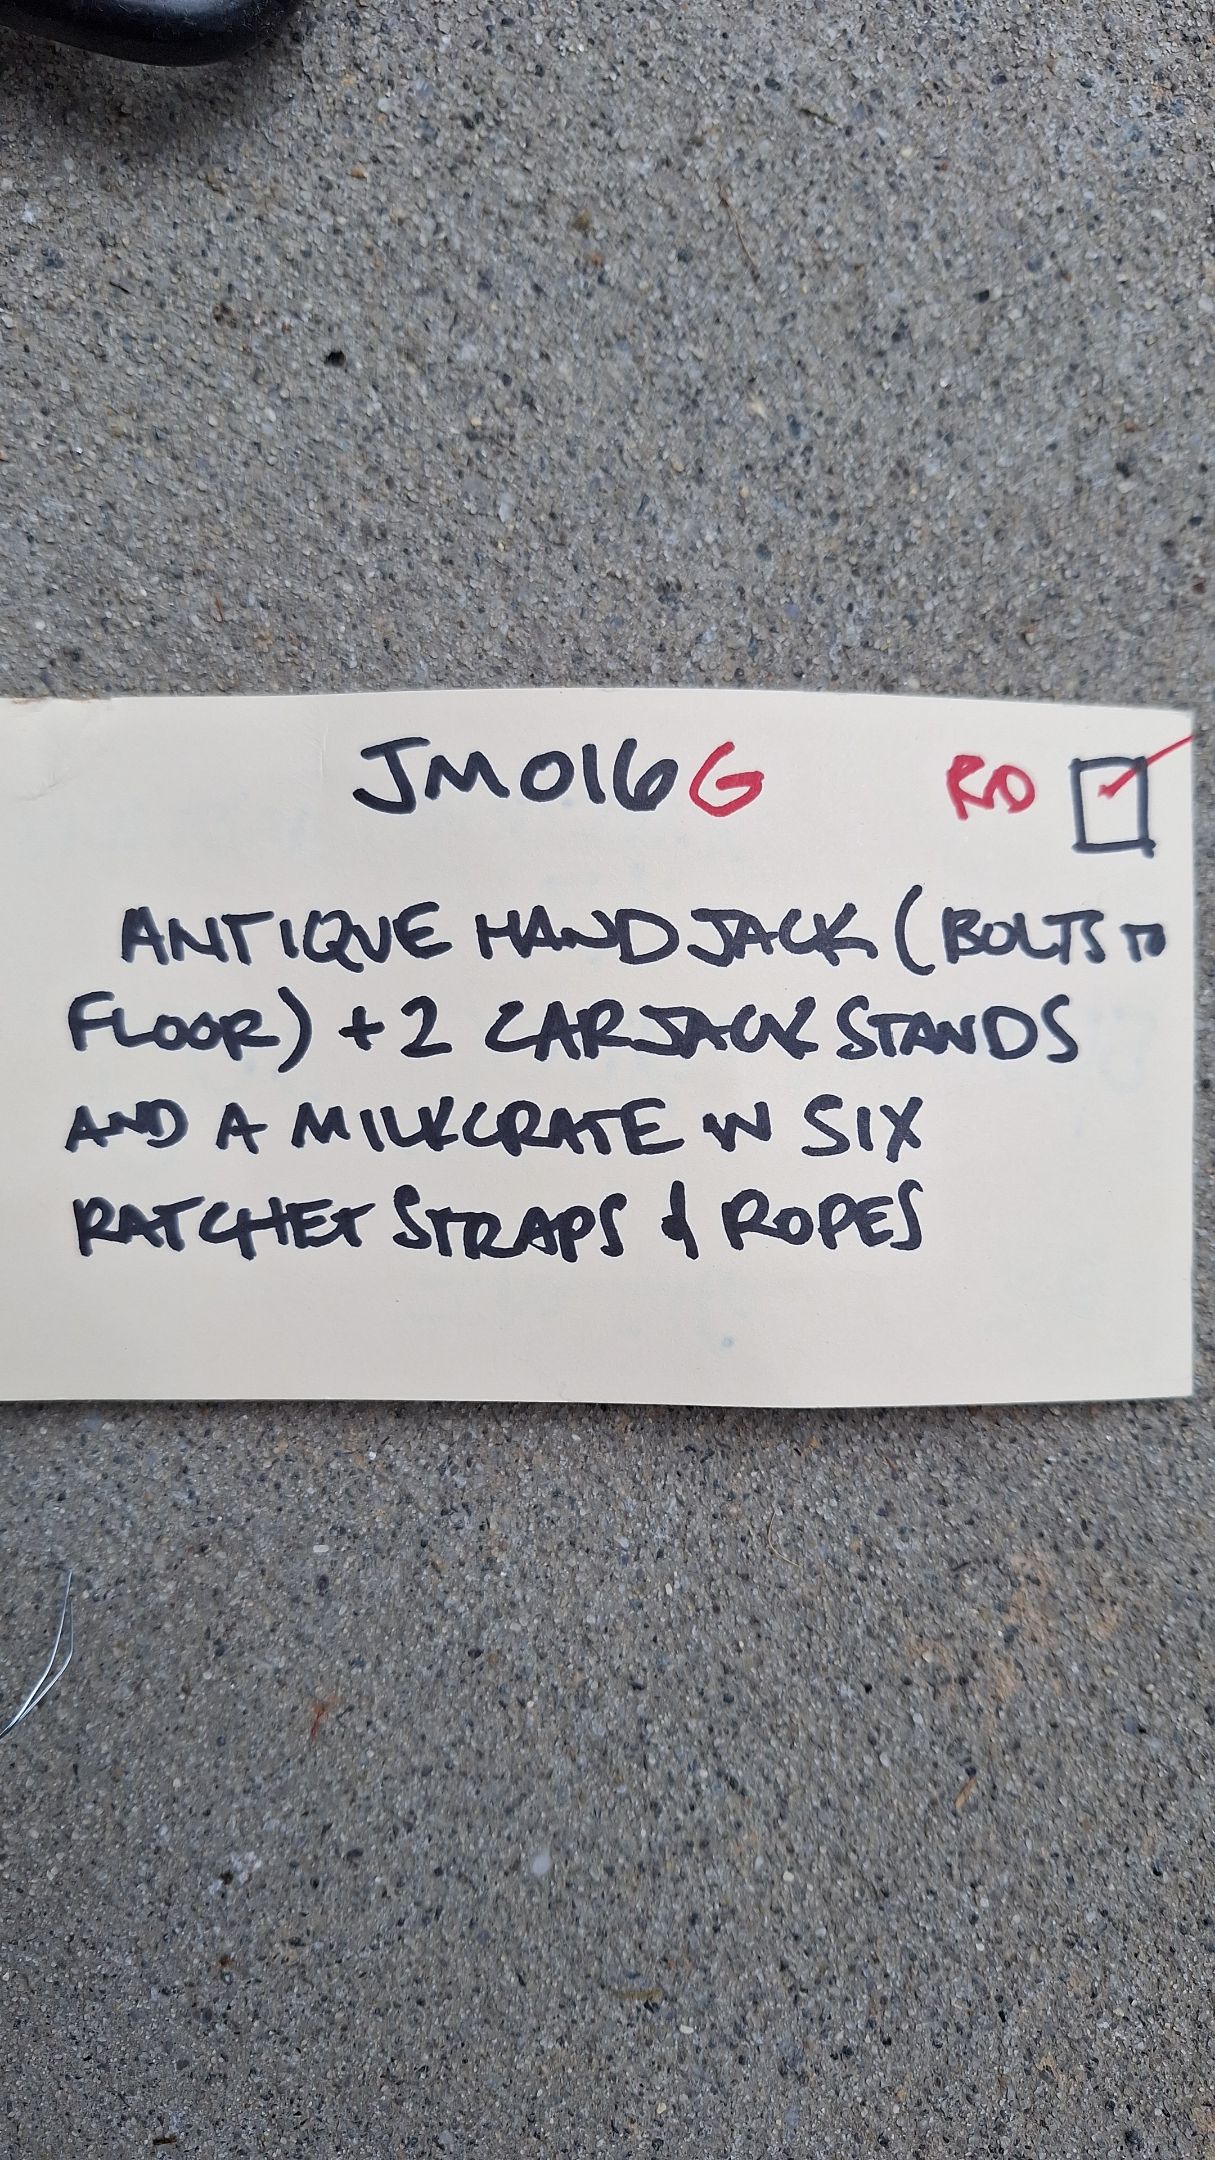 JM016G RD
ANTIQUE HAND JACK (BOLTS TO
FLOOR) + 2 CAR JACK STANDS
AND A MILKCRATE W SIX
RATCHET STRAPS & ROPES